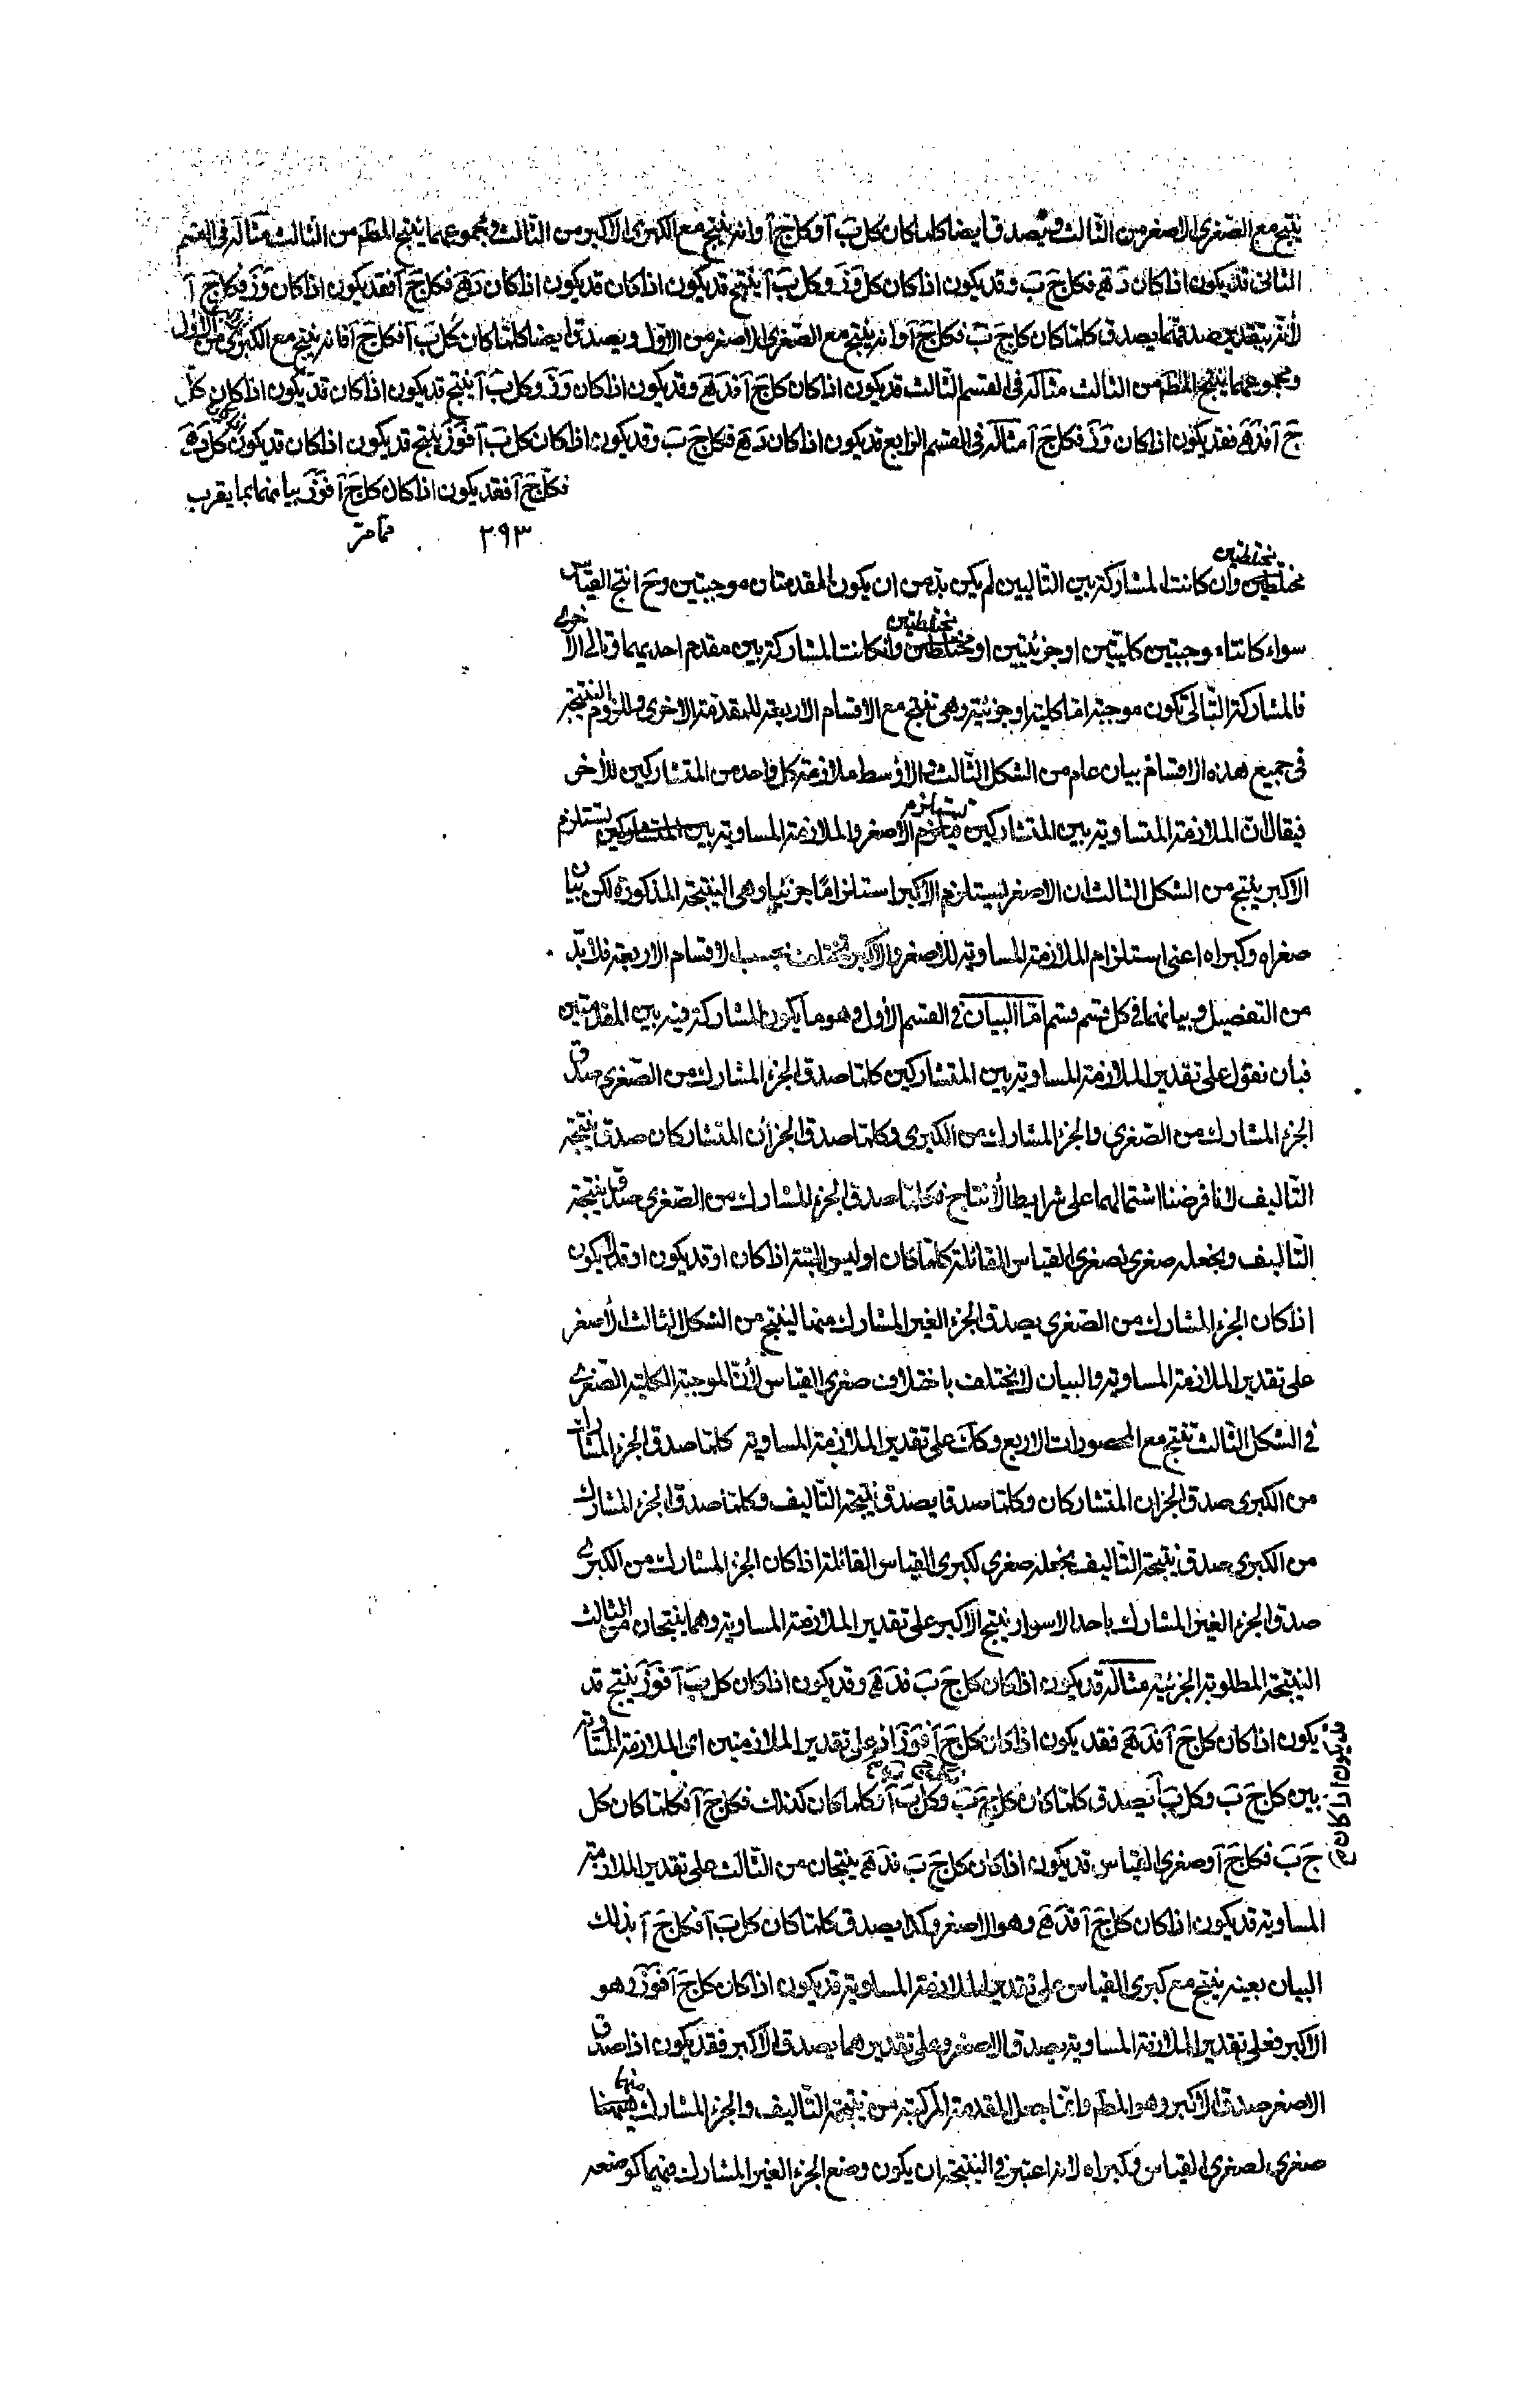 ينتج مع الصغرى الاصغر من الثالث ويصدق ايضا كلما كان كل ب آ وكل ج آ وانه ينتج مع الكبرى الاكبر من الثالث ومجموعهما ينتج المط من الثالث مثاله فى القسم
الثانى قد يكون اذا كان د ه فكل ج ب وقد يكون اذا كان كل و ز وكل ب آ ينتج قد يكون اذا كان قد يكون اذا كان د ه فكل ج آ فقد يكون اذا كان و ز فكل ج آ
لانه بتقدير صدقهما يصدق كلما كان كل ج ب فكل ج آ وانه ينتج مع الصغرى الاصغر من الاول ويصدق ايضا كلما كان كل ب آ فكل ج آ فانه ينتج مع الكبرى من الاول
ومجموعهما ينتج المط من الثالث مثاله فى القسم الثالث قد يكون اذا كان كل ج آ فد ه وقد يكون اذا كان و ز وكل ب آ ينتج قد يكون اذا كان قد يكون اذا كان كل
ج آ فد ه فقد يكون اذا كان و ز فكل ج آ مثاله فى القسم الرابع قد يكون اذا كان د ه فكل ج ب وقد يكون اذا كان كل ب آ فو ز ينتج قد يكون اذا كان قد يكون كل د ه
فكل ج آ فقد يكون اذا كان كل ج آ فو ز بيانهما بما يقرب
مما مر
٢٩٣
مختلطين
مختلطين وان كانت المشاركة بين التاليين لم يكن بد من ان يكون المقدمتان موجبتين وح انتج القياس
سواء كانتا موجبتين كليتين او جزئيتين او مختلطين وان كانت المشاركة بين مقدم احديهما وتالى الاخرى
فالمشاركة التالى تكون موجبة اما كلية او جزئية وهى تنتج مع الاقسام الاربعة للمقدمة الاخرى وللزوم النتيجة
فى جميع هذه الاقسام بيان عام من الشكل الثالث والاوسط ملازمة كل واحد من المتشاركين للاخر
فيقال ان الملازمة المتساوية بين المتشاركين يستلزم الاصغر والملازمة المساوية بين المتشاركين يستلزم
الاكبر ينتج من الشكل الثالث ان الاصغر يستلزم الاكبر استلزاما جزئيا وهى النتيجة المذكورة لكن بيان
صغراه وكبراه اعنى استلزام الملازمة المساوية للاصغر والاكبر مختلف بحسب الاقسام الاربعة فلا بد
من التفصيل وبيانهما فى كل قسم قسم اما البيان فى القسم الاول وهو ما يكون المشاركة فيه بين المقدمتين
فبان نقول على تقدير الملازمة المساوية بين المتشاركين كلما صدق الجزء المشارك من الصغرى صدق
الجزء المشارك من الصغرى والجزء المشارك من الكبرى وكلما صدق الجزآن المتشاركان صدق نتيجة
التاليف لانا فرضنا اشتمالهما على شرايط الانتاج فكلما صدق الجزء المشارك من الصغرى صدق نتيجة
التاليف ونجعله صغرى لصغرى القياس القائلة كلما كان او ليس البتة اذا كان او قد يكون او قد لا يكون
اذا كان الجزء المشارك من الصغرى يصدق الجزء الغير المشارك منها لينتج من الشكل الثالث الاصغر
على تقدير الملازمة المساوية والبيان لا يختلف باختلاف صغرى القياس لان الموجبة الكلية الصغرى
فى الشكل الثالث تنتج مع المحصورات الاربع وكك على تقدير الملازمة المساوية كلما صدق الجزء المشارك
من الكبرى صدق الجزان المتشاركان وكلما صدقا يصدق نتيجة التاليف وكلما صدق الجزء المشارك
من الكبرى صدق نتيجة التاليف نجعله صغرى لكبرى القياس القائلة اذا كان الجزء المشارك من الكبرى
صدق الجزء الغير المشارك باحد الاسوار ينتج الاكبر على تقدير الملازمة المساوية وهما ينتجان من الثالث
النتيجة المطلوبة الجزئية مثاله قد يكون اذا كان كل ج ب فد ه وقد يكون اذا كان كل ب آ فو ز ينتج قد
يكون اذا كان كل ج آ فد ه فقد يكون اذا كان كل ج آ فو ز اذ على تقدير الملازمتين اى الملازمة المساوية
بين كل ج ب وكل ب آ يصدق كلما كان كل ج ب وكل ب آ وكلما كان كذلك فكل ج آ فكلما كان كل
ج ب فكل ج آ وصغرى القياس قد يكون اذا كان كل ج ب فد ه ينتجان من الثالث على تقدير الملازمة
المساوية قد يكون اذا كان كل ج آ فد ه وهو الاصغر وكذا يصدق كلما كان كل ب آ فكل ج آ بذلك
البيان بعينه ينتج مع كبرى القياس على تقدير الملازمة المساوية قد يكون اذا كان كل ج آ فو ز وهو
الاكبر فعلى تقدير الملازمة المساوية يصدق الاصغر وعلى تقديرهما يصدق الاكبر فقد يكون اذا صدق
الاصغر صدق الاكبر وهو المط وانما جعل المقدمة المركبة من نتيجة التاليف والجزء المشارك منهما
صغرى لصغرى القياس وكبراه لانه اعتبر فى النتيجة ان يكون وضع الجزء الغير المشارك فيهما كوضعه